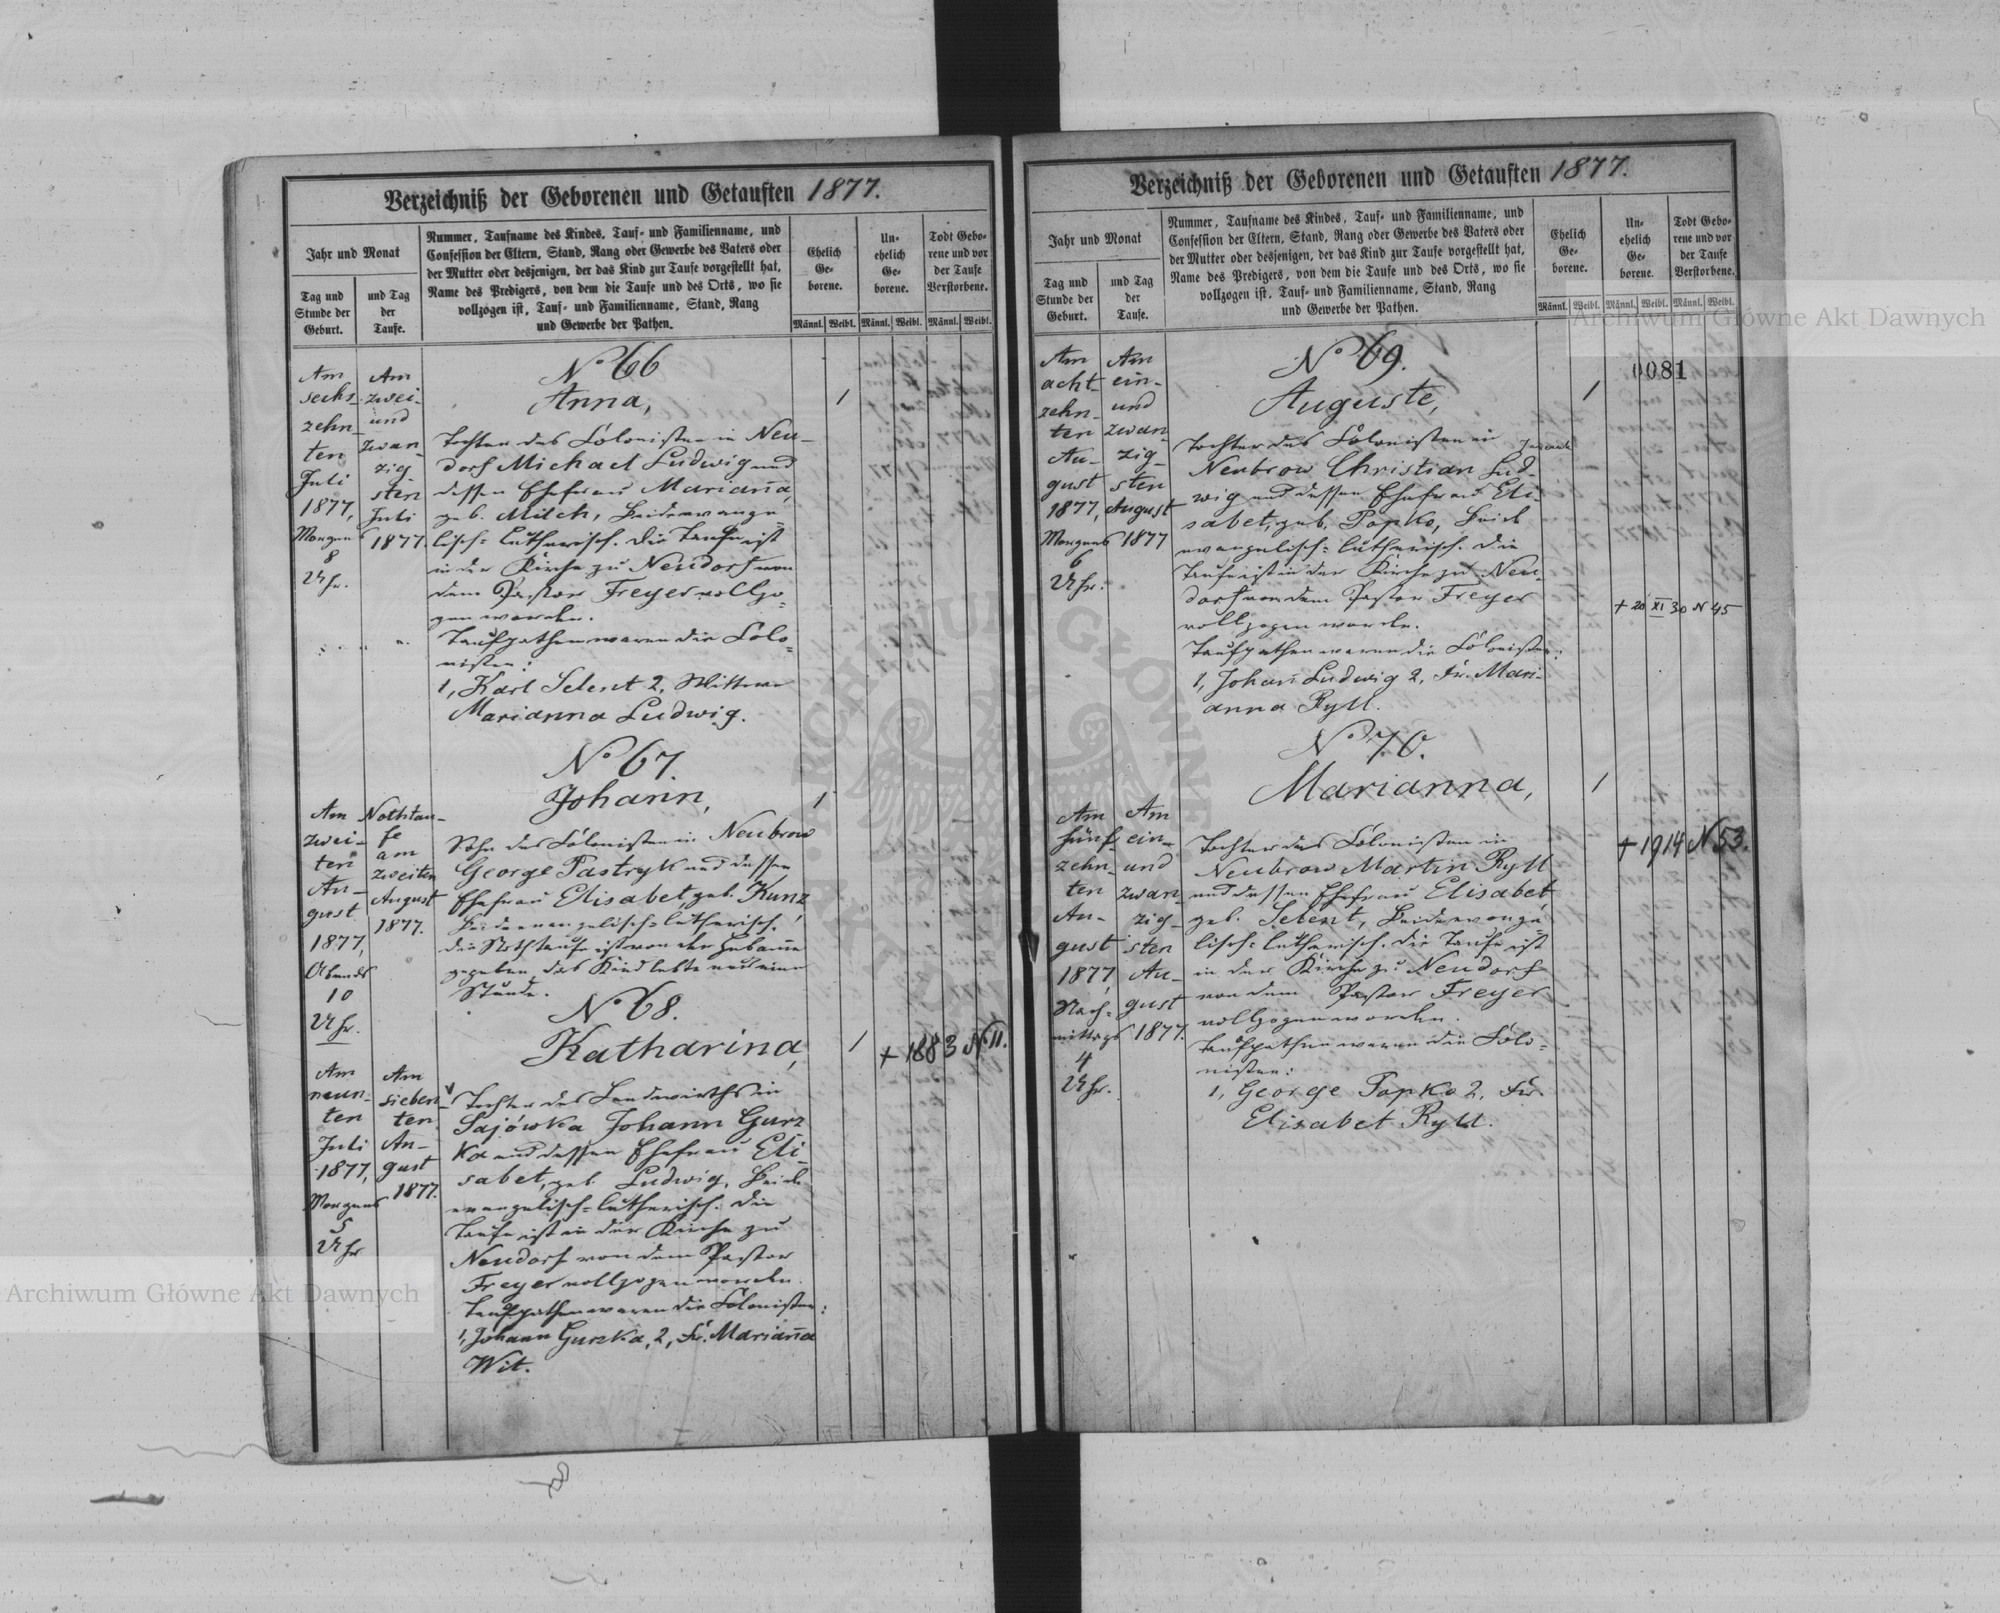 Verzeichniß der Geborenen und Getauften 1877.
Jahr und Monat
Tag und
Stunde der
Geburt.
und Tag
der
Taufe.
Nummer, Taufname des Kindes, Tauf- und Familienname, und
Confession der Eltern, Stand, Rang oder Gewerbe des Vaters oder
der Mutter oder desjenigen, der das Kind zur Taufe vorgestellt hat,
Name des Predigers, von dem die Taufe und des Orts, wo sie
vollzogen ist, Tauf- und Familienname, Stand, Rang
und Gewerbe der Pathen.
Ehelich
Ge-
borene.
Un-
ehelich
Ge-
borene.
Todt Gebo-
rene und vor
der Taufe
Verstorbene.
Männl. Weibl. Männl. Weibl. Männl. Weibl.
Am
sechs-
zehn-
ten
Juli
1877,
Morgens
8
Uhr.
Am
zwei-
und
zwan-
zig
sten
Juli
1877.
No 66
Anna,
1
Tochter des Colonisten in Neu-
dorf Michael Ludwig und
dessen Ehefrau Marianna,
geb. Milch, Beide evange-
lisch-lutherisch. Die Taufe ist
in der Kirche zu Neudorf von
dem Pastor Freyer vollzo-
gen worden.
Taufpathen waren die Colo-
nisten:
1, Karl Selent 2, Wittwe
Marianna Ludwig.
No 67.
Johann,
1
Am
zwei-
ten
Au-
gust
1877,
Abends
10
Uhr.
Nothtau-
fe
am
zweiten
August
1877.
Sohn des Colonisten in Neubrow
George Pastryk und dessen
Ehefrau Elisabet, geb. Kunz,
Beide evangelisch-lutherisch.
Die Nothtaufe ist von der Hebamme
gegeben, das Kind lebte nur eine
Stunde.
No 68.
Katharina,
1
+ 1883 N 11.
Am
neun-
ten
Juli
1877,
Morgens
5
Uhr
Am
sieben-
ten
Au-
gust
1877.
Tochter des Landwirths in
Sajówka Johann Gurz
ka und dessen Ehefrau Eli-
sabet, geb. Ludwig, Beide
evangelisch-lutherisch. Die
Taufe ist in der Kirche zu
Neudorf von dem Pastor
Freyer vollzogen worden.
Taufpathen waren die Colonisten:
1, Johann Gurzka, 2, Fr. Marianna
Wit.
Verzeichniß der Geborenen und Getauften 1877.
Jahr und Monat
Tag und
Stunde der
Geburt.
und Tag
der
Taufe.
Nummer, Taufname des Kindes, Tauf- und Familienname, und
Confession der Eltern, Stand, Rang oder Gewerbe des Vaters oder
der Mutter oder desjenigen, der das Kind zur Taufe vorgestellt hat,
Name des Predigers, von dem die Taufe und des Orts, wo sie
vollzogen ist, Tauf- und Familienname, Stand, Rang
und Gewerbe der Pathen.
Ehelich
Ge-
borene.
Un-
ehelich
Ge-
borene.
Todt Gebo-
rene und vor
der Taufe
Verstorbene.
Männl. Weibl. Männl. Weibl. Männl. Weibl.
0081
Am
acht-
zehn-
ten
Au-
gust
1877,
Morgens
6
Uhr.
Am
ein-
und
zwan-
zig-
sten
August
1877
No 69.
Auguste,
1
Tochter des Colonisten in
Neubrow Christian Lud-
wig und dessen Ehefrau Eli-
sabet, geb. Popko, Beide
evangelisch-lutherisch. Die
Taufe ist in der Kirche zu Neu-
dorf von dem Pastor Freyer
vollzogen worden.
Taufpathen waren die Colonisten:
1, Johann Ludwig 2, Fr. Mari-
anna Ryll.
+ 20 XI 30 N 45
No 70.
Marianna,
1
Am
fünf-
zehn-
ten
Au-
gust
1877,
Nach-
mittags
4
Uhr.
Am
ein-
und
zwan-
zig-
sten
Au-
gust
1877.
Tochter des Colonisten in
Neubrow Martin Ryll
und dessen Ehefrau Elisabet
geb. Selent, Beide evange-
lisch-lutherisch. Die Taufe ist
in der Kirche zu Neudorf
von dem Pastor Freyer
vollzogen worden.
Taufpathen waren die Colo-
nisten:
1, George Popko 2, Fr.
Elisabet Ryll.
+ 1914 N 53.
Archiwum Główne Akt Dawnych
Archiwum Główne Akt Dawnych
ARCHIWUM GŁÓWNE AKT